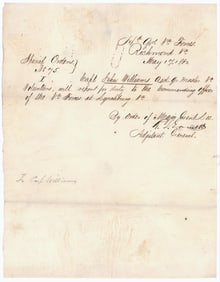 Hd Qrs Va Forces
Richmond Va
May 17, 1861
Special Orders
No 75
I. Capt John Williams Asst Qr Master Va
Volunteers, will report for duty to the commanding officer
of the Va Forces at Lynchburg Va
By Order of Major Genl Lee
Adjutant General
To Capt Williams